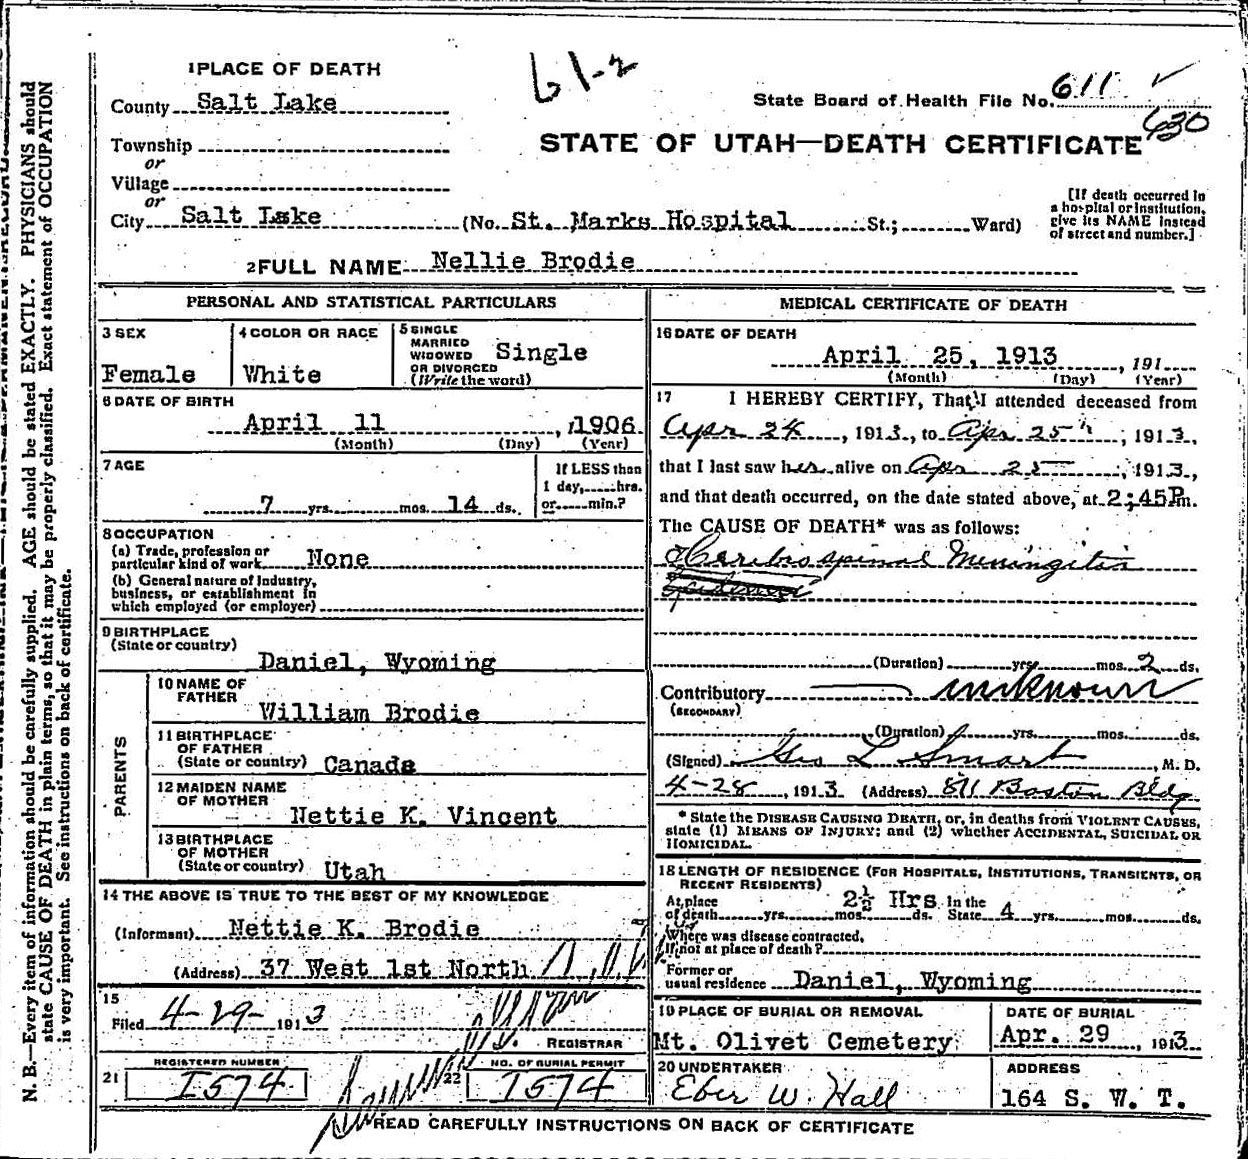 61-2
1 PLACE OF DEATH
County Salt Lake
State Board of Health File No. 611
630
Township
or
Village
or
City Salt Lake (No. St. Marks Hospital St.; Ward)
STATE OF UTAH—DEATH CERTIFICATE
[If death occurred in
a hospital or institution,
give its NAME instead
of street and number.]
2 FULL NAME Nellie Brodie
PERSONAL AND STATISTICAL PARTICULARS
3 SEX
Female
4 COLOR OR RACE
White
5 SINGLE
MARRIED
WIDOWED
OR DIVORCED
(Write the word)
Single
6 DATE OF BIRTH
April 11, 1906
(Month) (Day) (Year)
7 AGE
7 yrs. mos. 14 ds.
If LESS than
1 day, hrs.
or min.?
8 OCCUPATION
(a) Trade, profession or
particular kind of work None
(b) General nature of Industry,
business, or establishment in
which employed (or employer)
9 BIRTHPLACE
(State or country)
Daniel, Wyoming
PARENTS
10 NAME OF
FATHER
William Brodie
11 BIRTHPLACE
OF FATHER
(State or country) Canada
12 MAIDEN NAME
OF MOTHER
Nettie K. Vincent
13 BIRTHPLACE
OF MOTHER
(State or country) Utah
14 THE ABOVE IS TRUE TO THE BEST OF MY KNOWLEDGE
(Informant) Nettie K. Brodie
(Address) 37 West 1st North
15
Filed 4-29- 1913
REGISTRAR
REGISTERED NUMBER
21 I574
NO. OF BURIAL PERMIT
22 I574
MEDICAL CERTIFICATE OF DEATH
16 DATE OF DEATH
April 25, 1913, 191
(Month) (Day) (Year)
17 I HEREBY CERTIFY, That I attended deceased from
Apr 24, 1913, to Apr 25th, 1913,
that I last saw her alive on Apr 25, 1913,
and that death occurred, on the date stated above, at 2:45 Pm.
The CAUSE OF DEATH* was as follows:
Cerebrospinal Meningitis
(Duration) yrs. mos. 2 ds.
Contributory unknown
(SECONDARY)
(Duration) yrs. mos. ds.
(Signed) Geo L Smart, M. D.
4-28, 1913 (Address) 811 Boston Bldg
* State the DISEASE CAUSING DEATH, or, in deaths from VIOLENT CAUSES,
state (1) MEANS OF INJURY; and (2) whether ACCIDENTAL, SUICIDAL OR
HOMICIDAL.
18 LENGTH OF RESIDENCE (FOR HOSPITALS, INSTITUTIONS, TRANSIENTS, OR
RECENT RESIDENTS)
At place
of death yrs. mos. ds. 2½ Hrs In the
State 4 yrs. mos. ds.
Where was disease contracted,
if not at place of death?
Former or
usual residence Daniel, Wyoming
19 PLACE OF BURIAL OR REMOVAL
Mt. Olivet Cemetery
DATE OF BURIAL
Apr. 29, 1913
20 UNDERTAKER
Eber W. Hall
ADDRESS
164 S. W. T.
READ CAREFULLY INSTRUCTIONS ON BACK OF CERTIFICATE
N. B.—Every item of information should be carefully supplied. AGE should be stated EXACTLY. PHYSICIANS should
state CAUSE OF DEATH in plain terms, so that it may be properly classified. Exact statement of OCCUPATION
is very important. See instructions on back of certificate.